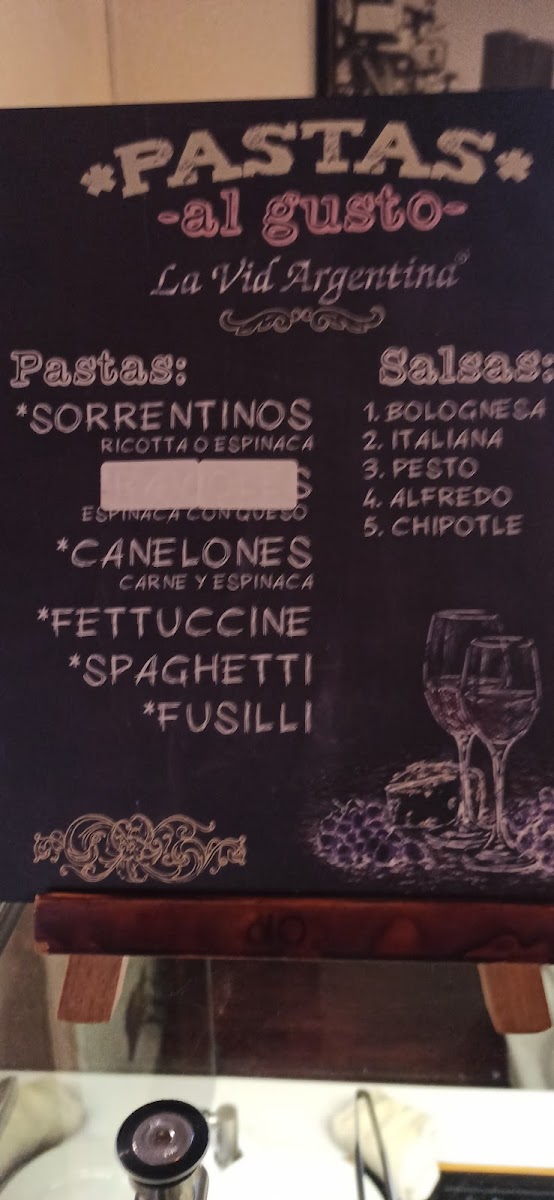 *PASTAS*
-al gusto-
La Vid Argentina®
Pastas:
*SORRENTINOS
RICOTTA O ESPINACA
ESPINACA CON QUESO
*CANELONES
CARNE Y ESPINACA
*FETTUCCINE
*SPAGHETTI
*FUSILLI
Salsas:
1. BOLOGNESA
2. ITALIANA
3. PESTO
4. ALFREDO
5. CHIPOTLE